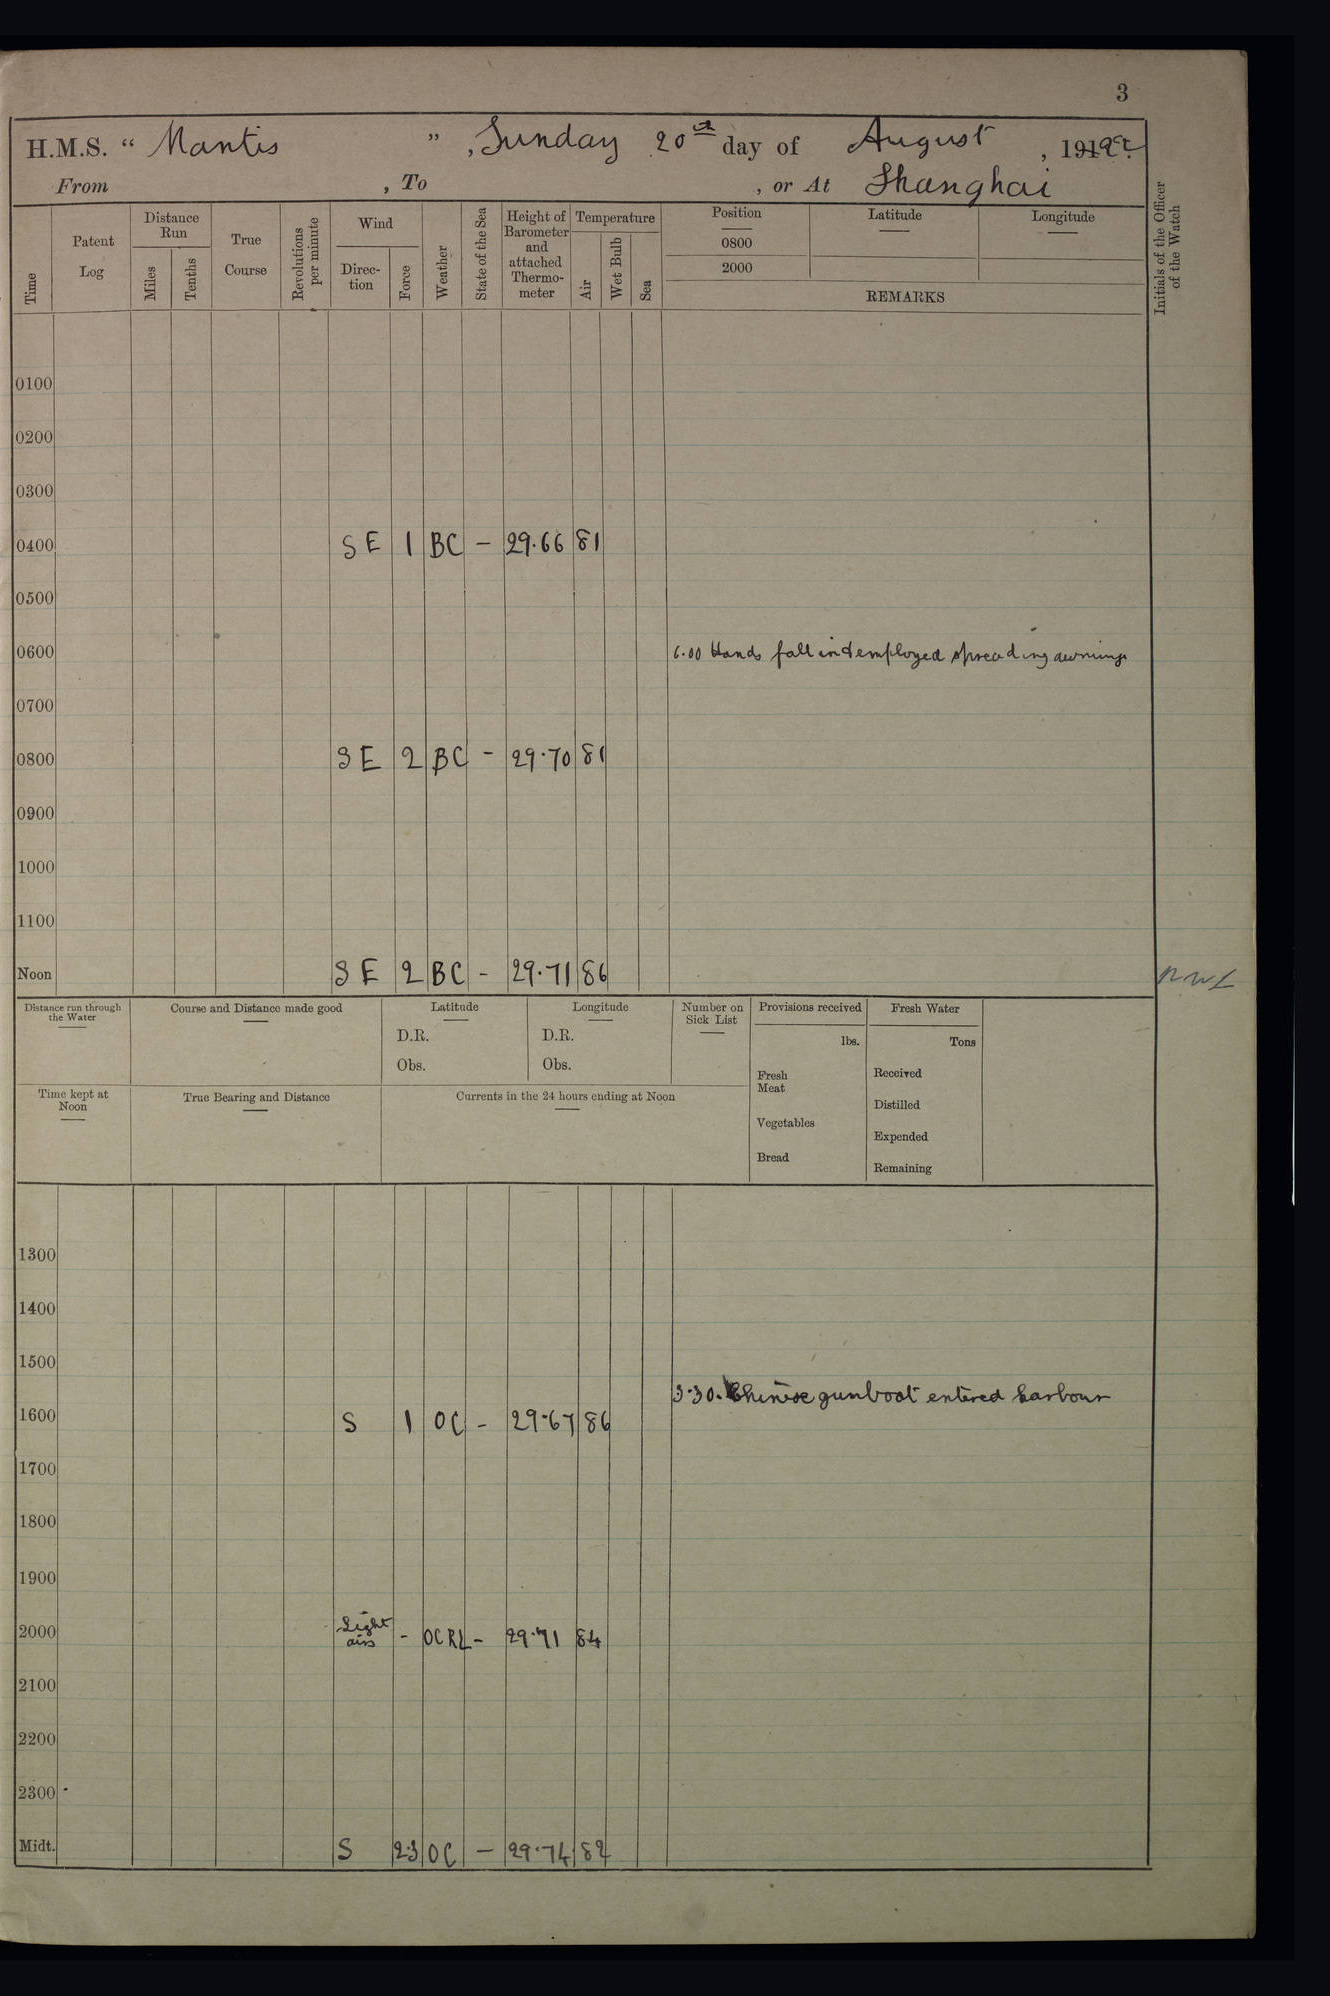 3
H.M.S. “ Mantis ” , Sunday 20th day of August , 1922.
From , To , or At Shanghai
Time
Patent Log
Distance Run
Miles
Tenths
True Course
Revolutions per minute
Wind
Direc-tion
Force
Weather
State of the Sea
Height of Barometer and attached Thermo-meter
Temperature
Air
Wet Bulb
Sea
Position
0800
2000
Latitude
Longitude
REMARKS
Initials of the Officer of the Watch
0100
0200
0300
0400 SE 1 BC - 29.66 81
0500
0600 6.00 Hands fall in & employed spreading awnings
0700
0800 SE 2 BC - 29.70 81
0900
1000
1100
Noon SE 2 BC - 29.71 86
Distance run through the Water
Course and Distance made good
Latitude
D.R.
Obs.
Longitude
D.R.
Obs.
Number on Sick List
Provisions received
lbs.
Fresh Meat
Vegetables
Bread
Fresh Water
Tons
Received
Distilled
Expended
Remaining
Time kept at Noon
True Bearing and Distance
Currents in the 24 hours ending at Noon
1300
1400
1500
3.30. Chinese gunboat entered harbour
1600 S 1 OC - 29.67 86
1700
1800
1900
2000 Light airs - OCRL - 29.71 84
2100
2200
2300
Midt. S 2.3 OC - 29.74 82